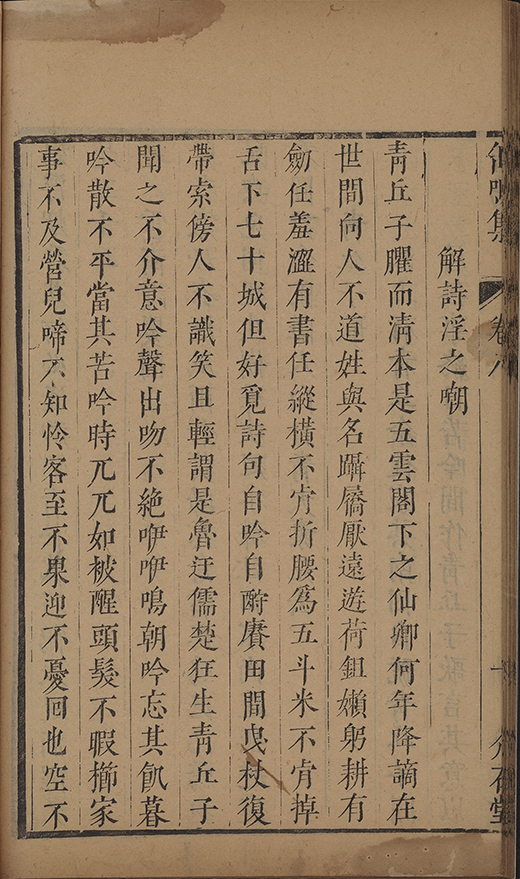 缶鳴集 卷八 十 介石堂
解詩淫之嘲
青丘子臞而清本是五雲閣下之仙卿何年降謫在
世間向人不道姓與名躡屩厭遠遊荷鉏嬾躬耕有
劒任羞澀有書任縱橫不肯折腰爲五斗米不肯掉
舌下七十城但好覓詩句自吟自酧賡田間曳杖復
帶索傍人不識笑且輕謂是魯迂儒楚狂生青丘子
聞之不介意吟聲出吻不絕咿咿鳴朝吟忘其飢暮
吟散不平當其苦吟時兀兀如被酲頭髮不暇櫛家
事不及營兒啼不知怜客至不果迎不憂囘也空不